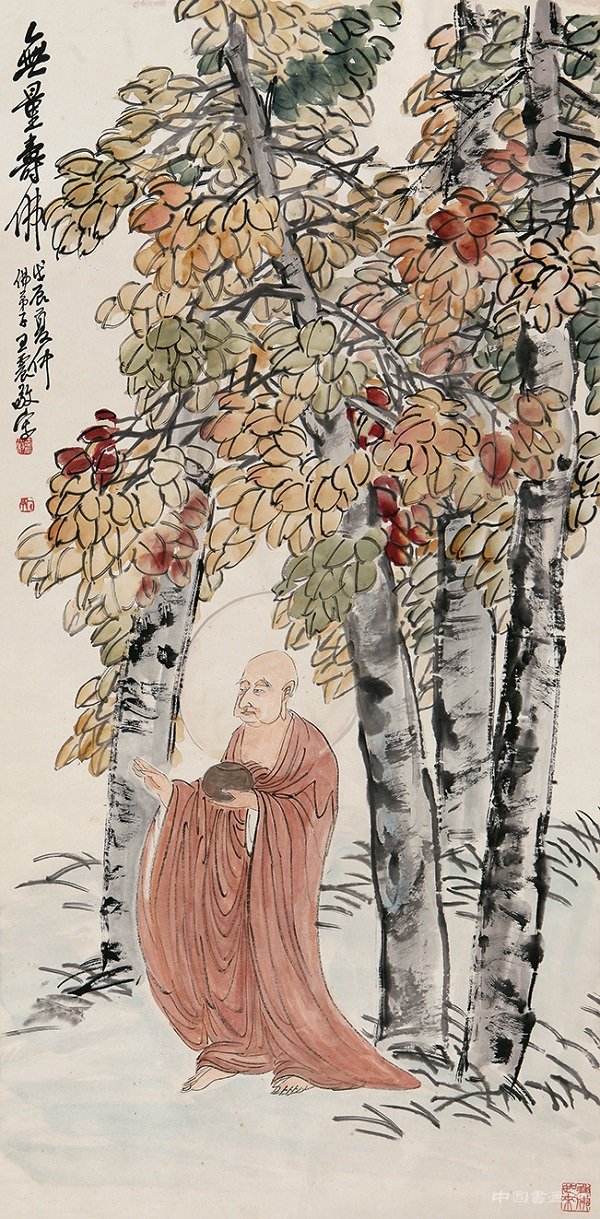 無量壽佛
戊辰夏仲
佛弟子王震敬寫
中国书画